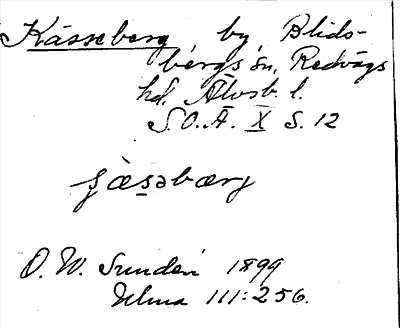 Kässeberg by Blids-
bergs sn, Redvägs
hd. Älvsb. l.
S.O.Ä. X S. 12
O. W. Sundén 1899
Ulma 111:256.